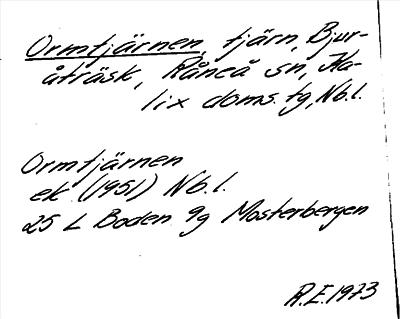 Ormtjärnen, tjärn, Bjur-
åträsk, Råneå sn, Ka-
lix doms. tg, Nb.l.
Ormtjärnen
ek. (1951) Nb.l.
25 L Boden 9g Mosterbergen
R.E.1973